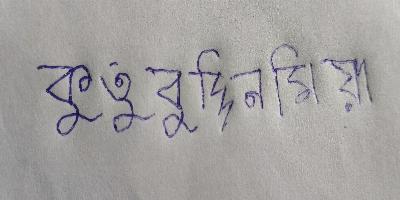 কুতুবুদ্দিন মিয়া